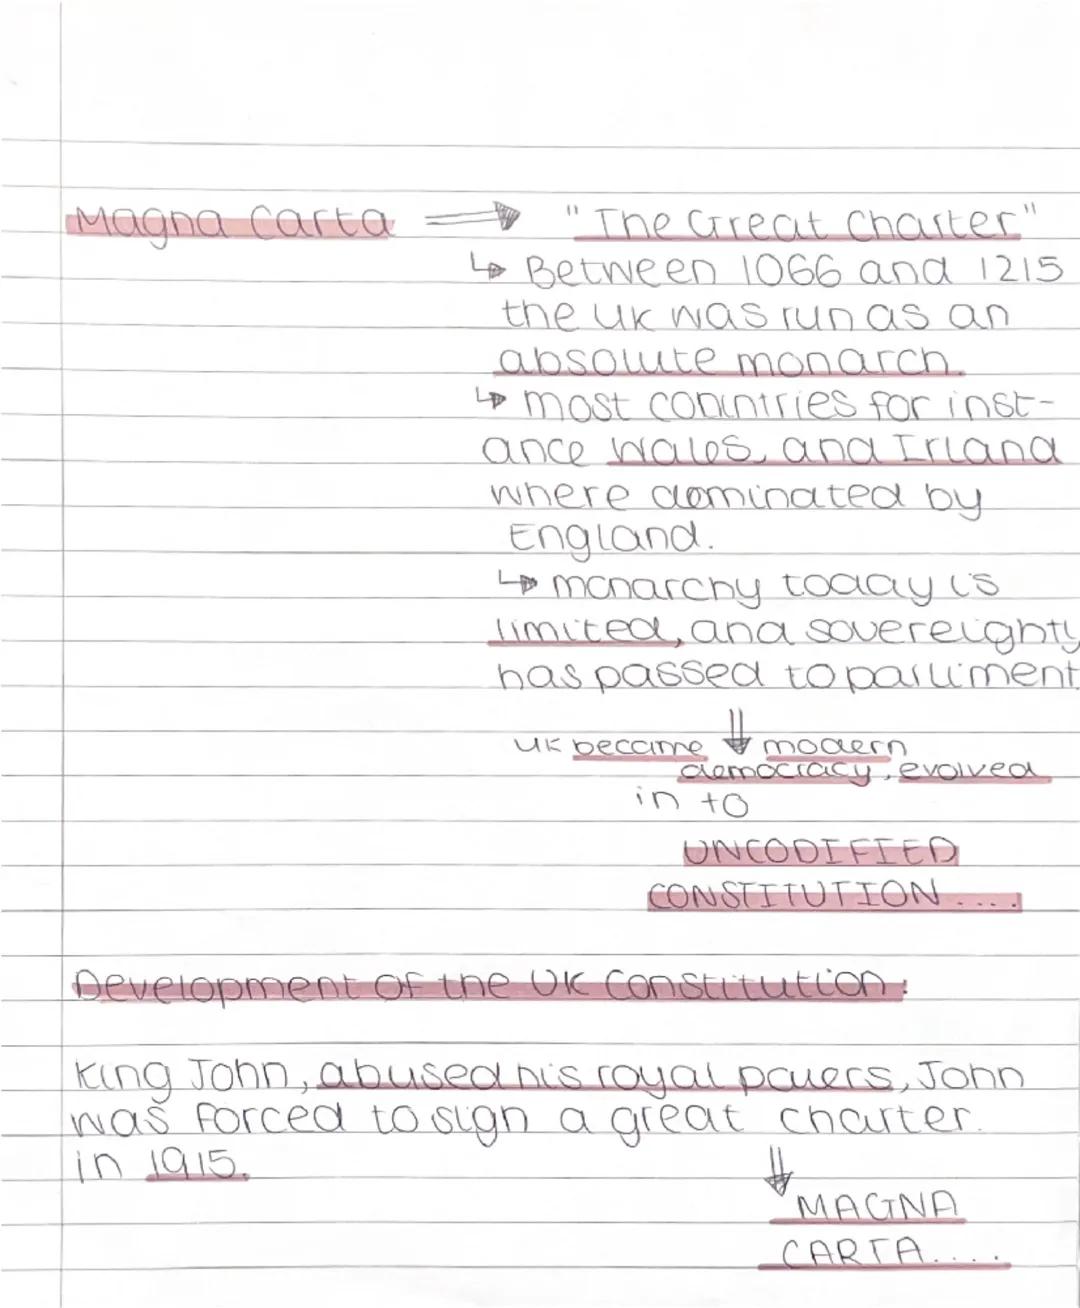 Magna Carta ⇒ "The Great Charter"
↳ Between 1066 and 1215
the UK was run as an
absolute monarch.
↳ most conintries for inst-
ance Wales, and Irland
where dominated by
England.
↳ monarchy today is
limited, and sovereignty
has passed to parliment
⇓
UK became modern
democracy, evolved
in to
UNCODIFIED
CONSTITUTION....
Development of the UK Constitution:
King John, abused his royal powers, John
was forced to sign a great charter.
in 1915.
⇓
MAGNA
CARTA....